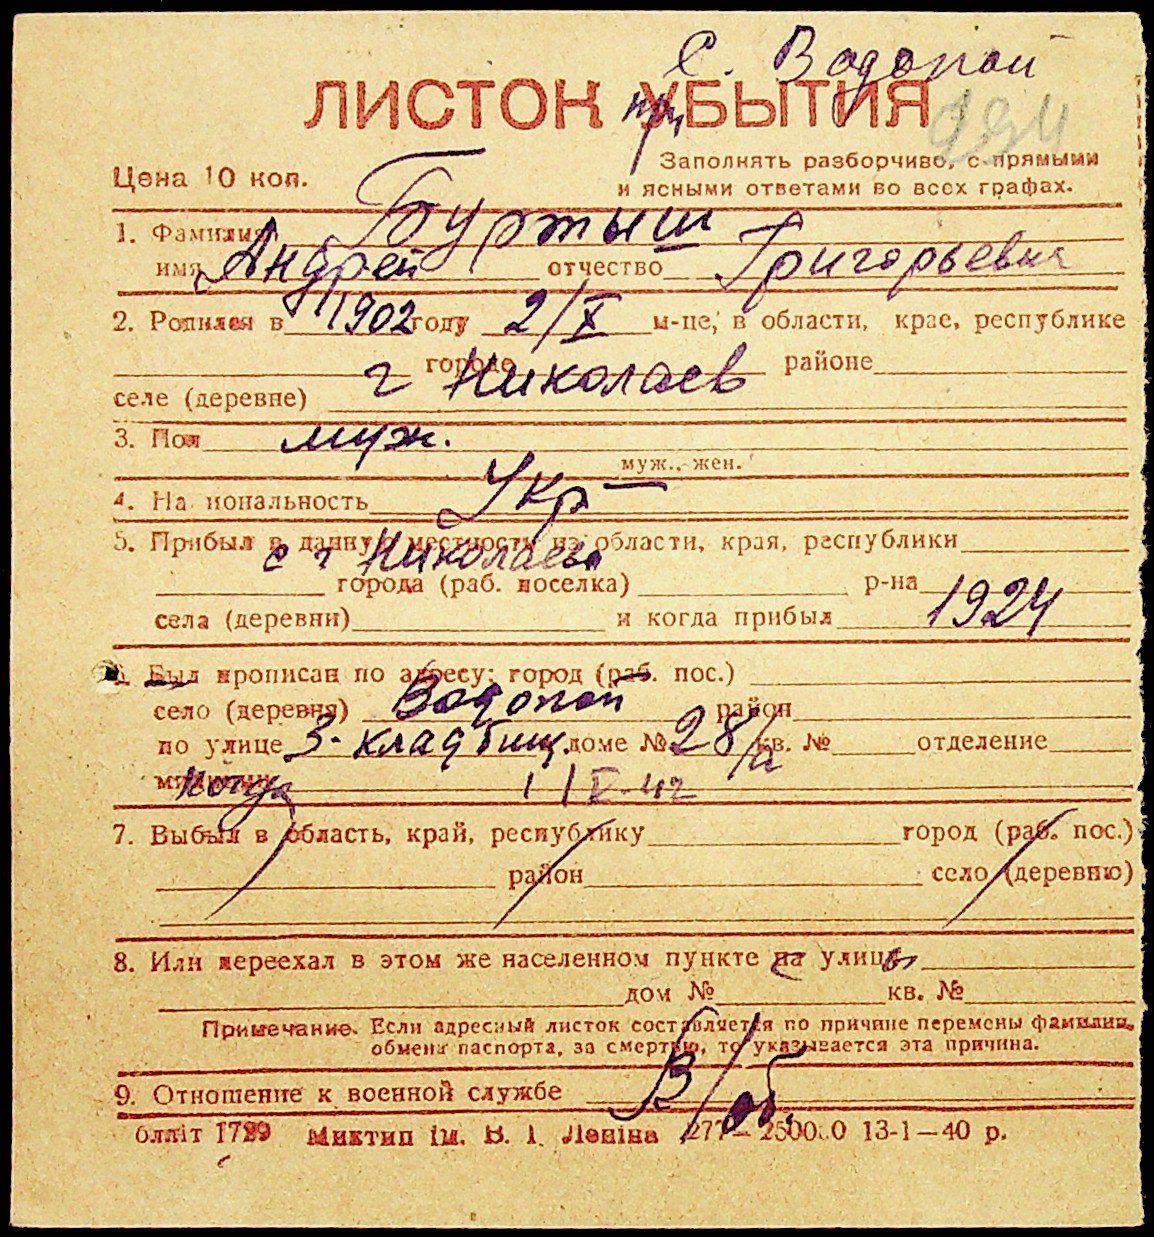 С. Водопой
ЛИСТОК УБЫТИЯ
при
994
Цена 10 коп.
Заполнять разборчиво, с прямыми
и ясными ответами во всех графах.
1. Фамилия Буртыш
имя Андрей отчество Григорьевич
2. Родился в 1902 году 2/X м-це, в области, крае, республике
городе г Николаев районе
селе (деревне)
3. Пол муж.
муж., жен.
4. Национальность Укр
5. Прибыл в данную местность из области, края, республики
с г Николаева
города (раб. поселка) р-на
села (деревни) и когда прибыл 1924
6. Был прописан по адресу: город (раб. пос.)
село (деревня) Водопой район
по улице 3-кладбищ. доме № 28/а кв. № отделение
милиции Когда 1/V-42
7. Выбыл в область, край, республику город (раб. пос.)
район село (деревню)
8. Или переехал в этом же населенном пункте на улицы
дом № кв. №
Примечание. Если адресный листок составляется по причине перемены фамилии,
обмена паспорта, за смертью, то указывается эта причина.
9. Отношение к военной службе В/об.
блліт 1729 Миктип ім. В. І. Леніна 277—250000 13-1—40 р.